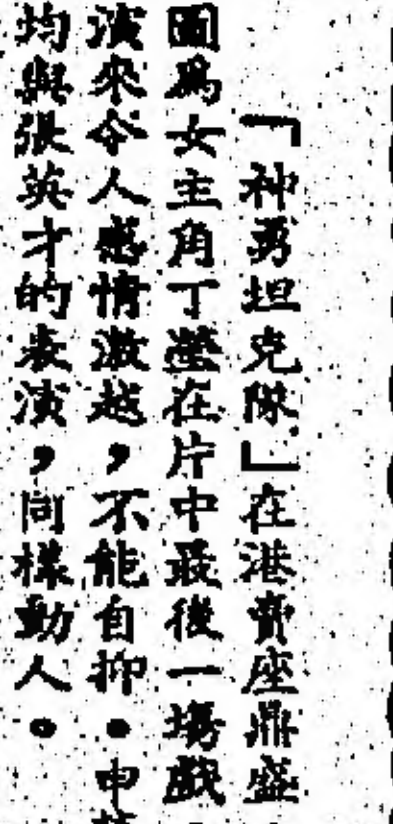 「神勇坦克隊」在港賣座鼎盛
圖爲女主角丁瑩在片中最後一塲戲
演來令人感情激越，不能自抑。申
均與張英才的表演，同樣動人。